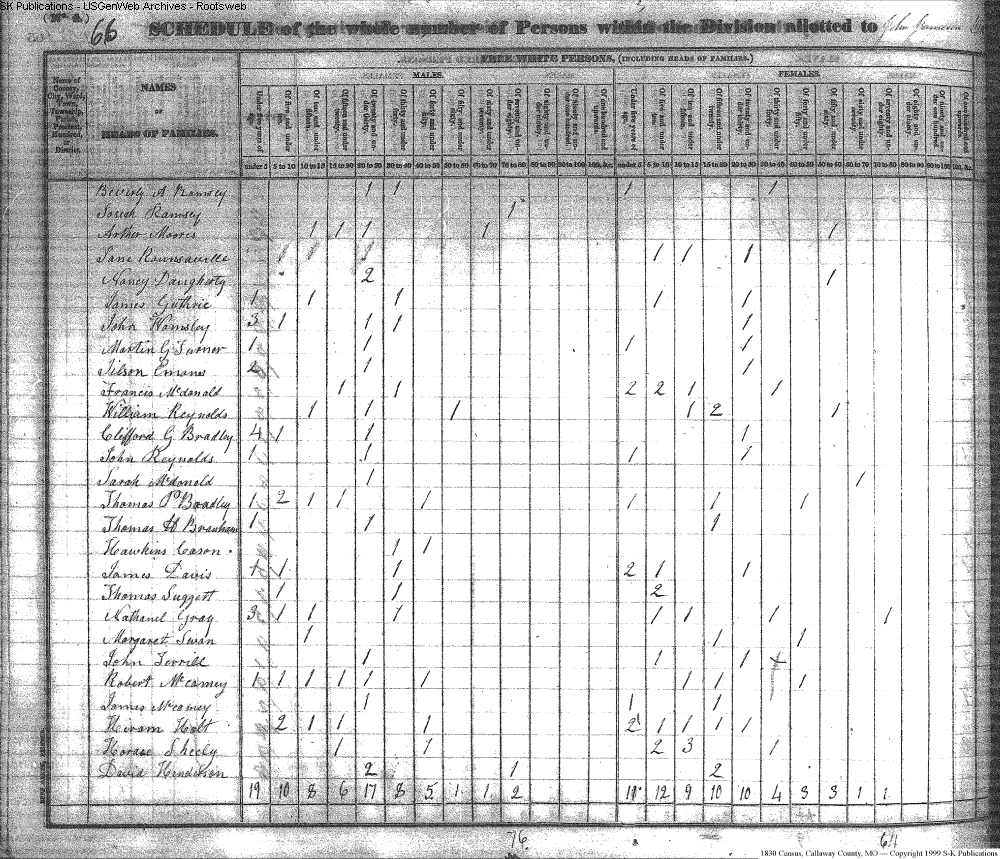 S-K Publications - USGenWeb Archives - Rootsweb
(No. 4.)
66 SCHEDULE of the whole number of Persons within the Division allotted to John
FREE WHITE PERSONS, (INCLUDING HEADS OF FAMILIES.)
MALES. FEMALES.
Name of County, City, Ward, Town, Township, Parish, Precinct, Hundred, or District.
NAMES
OF
HEADS OF FAMILIES.
under 5 5 to 10 10 to 15 15 to 20 20 to 30 30 to 40 40 to 50 50 to 60 60 to 70 70 to 80 80 to 90 90 to 100 100, &c. under 5 5 to 10 10 to 15 15 to 20 20 to 30 30 to 40 40 to 50 50 to 60 60 to 70 70 to 80 80 to 90 90 to 100 100, &c.
Beverly A Ramsey 1 1 1 1
Josiah Ramsey 1
Arther Moores 1 1 1 1 1
Jane Rounsaville 1 1 1 1 1
Nancy Daugherty 2 1
James Guthrie 1 1 1 1 1
John Wamsley 3 1 1 1 1
Martin G Turner 1 1 1 1
Jilson Emans 2 1 1
Francis McDonald 1 1 2 2 1 1
William Reynolds 1 1 1 1 2 1
Clifford G Bradley 4 1 1 1
John Reynolds 1 1 1 1
Sarah McDonald 1 1
Thomas P Bradley 1 2 1 1 1 1 1 1
Thomas H Branham 1 1 1
Hawkins Cason 1 1
James Davis 1 1 1 2 1 1
Thomas Suggett 1 1 2
Nathanel Gray 3 1 1 1 1 1 1 1
Margaret Swan 1 1 1
John Terrill 1 1 1
Robert McCamey 1 1 1 1 1 1 1 1 1
James McCamey 1 1 1
Hiram Holt 2 1 1 1 2 1 1 1 1
Horace Sheely 1 1 2 3 1
David Henderson 2 1 2
19 10 8 6 17 8 5 1 1 2 11 12 9 10 10 4 3 3 1 1
76 64
1830 Census, Callaway County, MO — Copyright 1999 S-K Publications